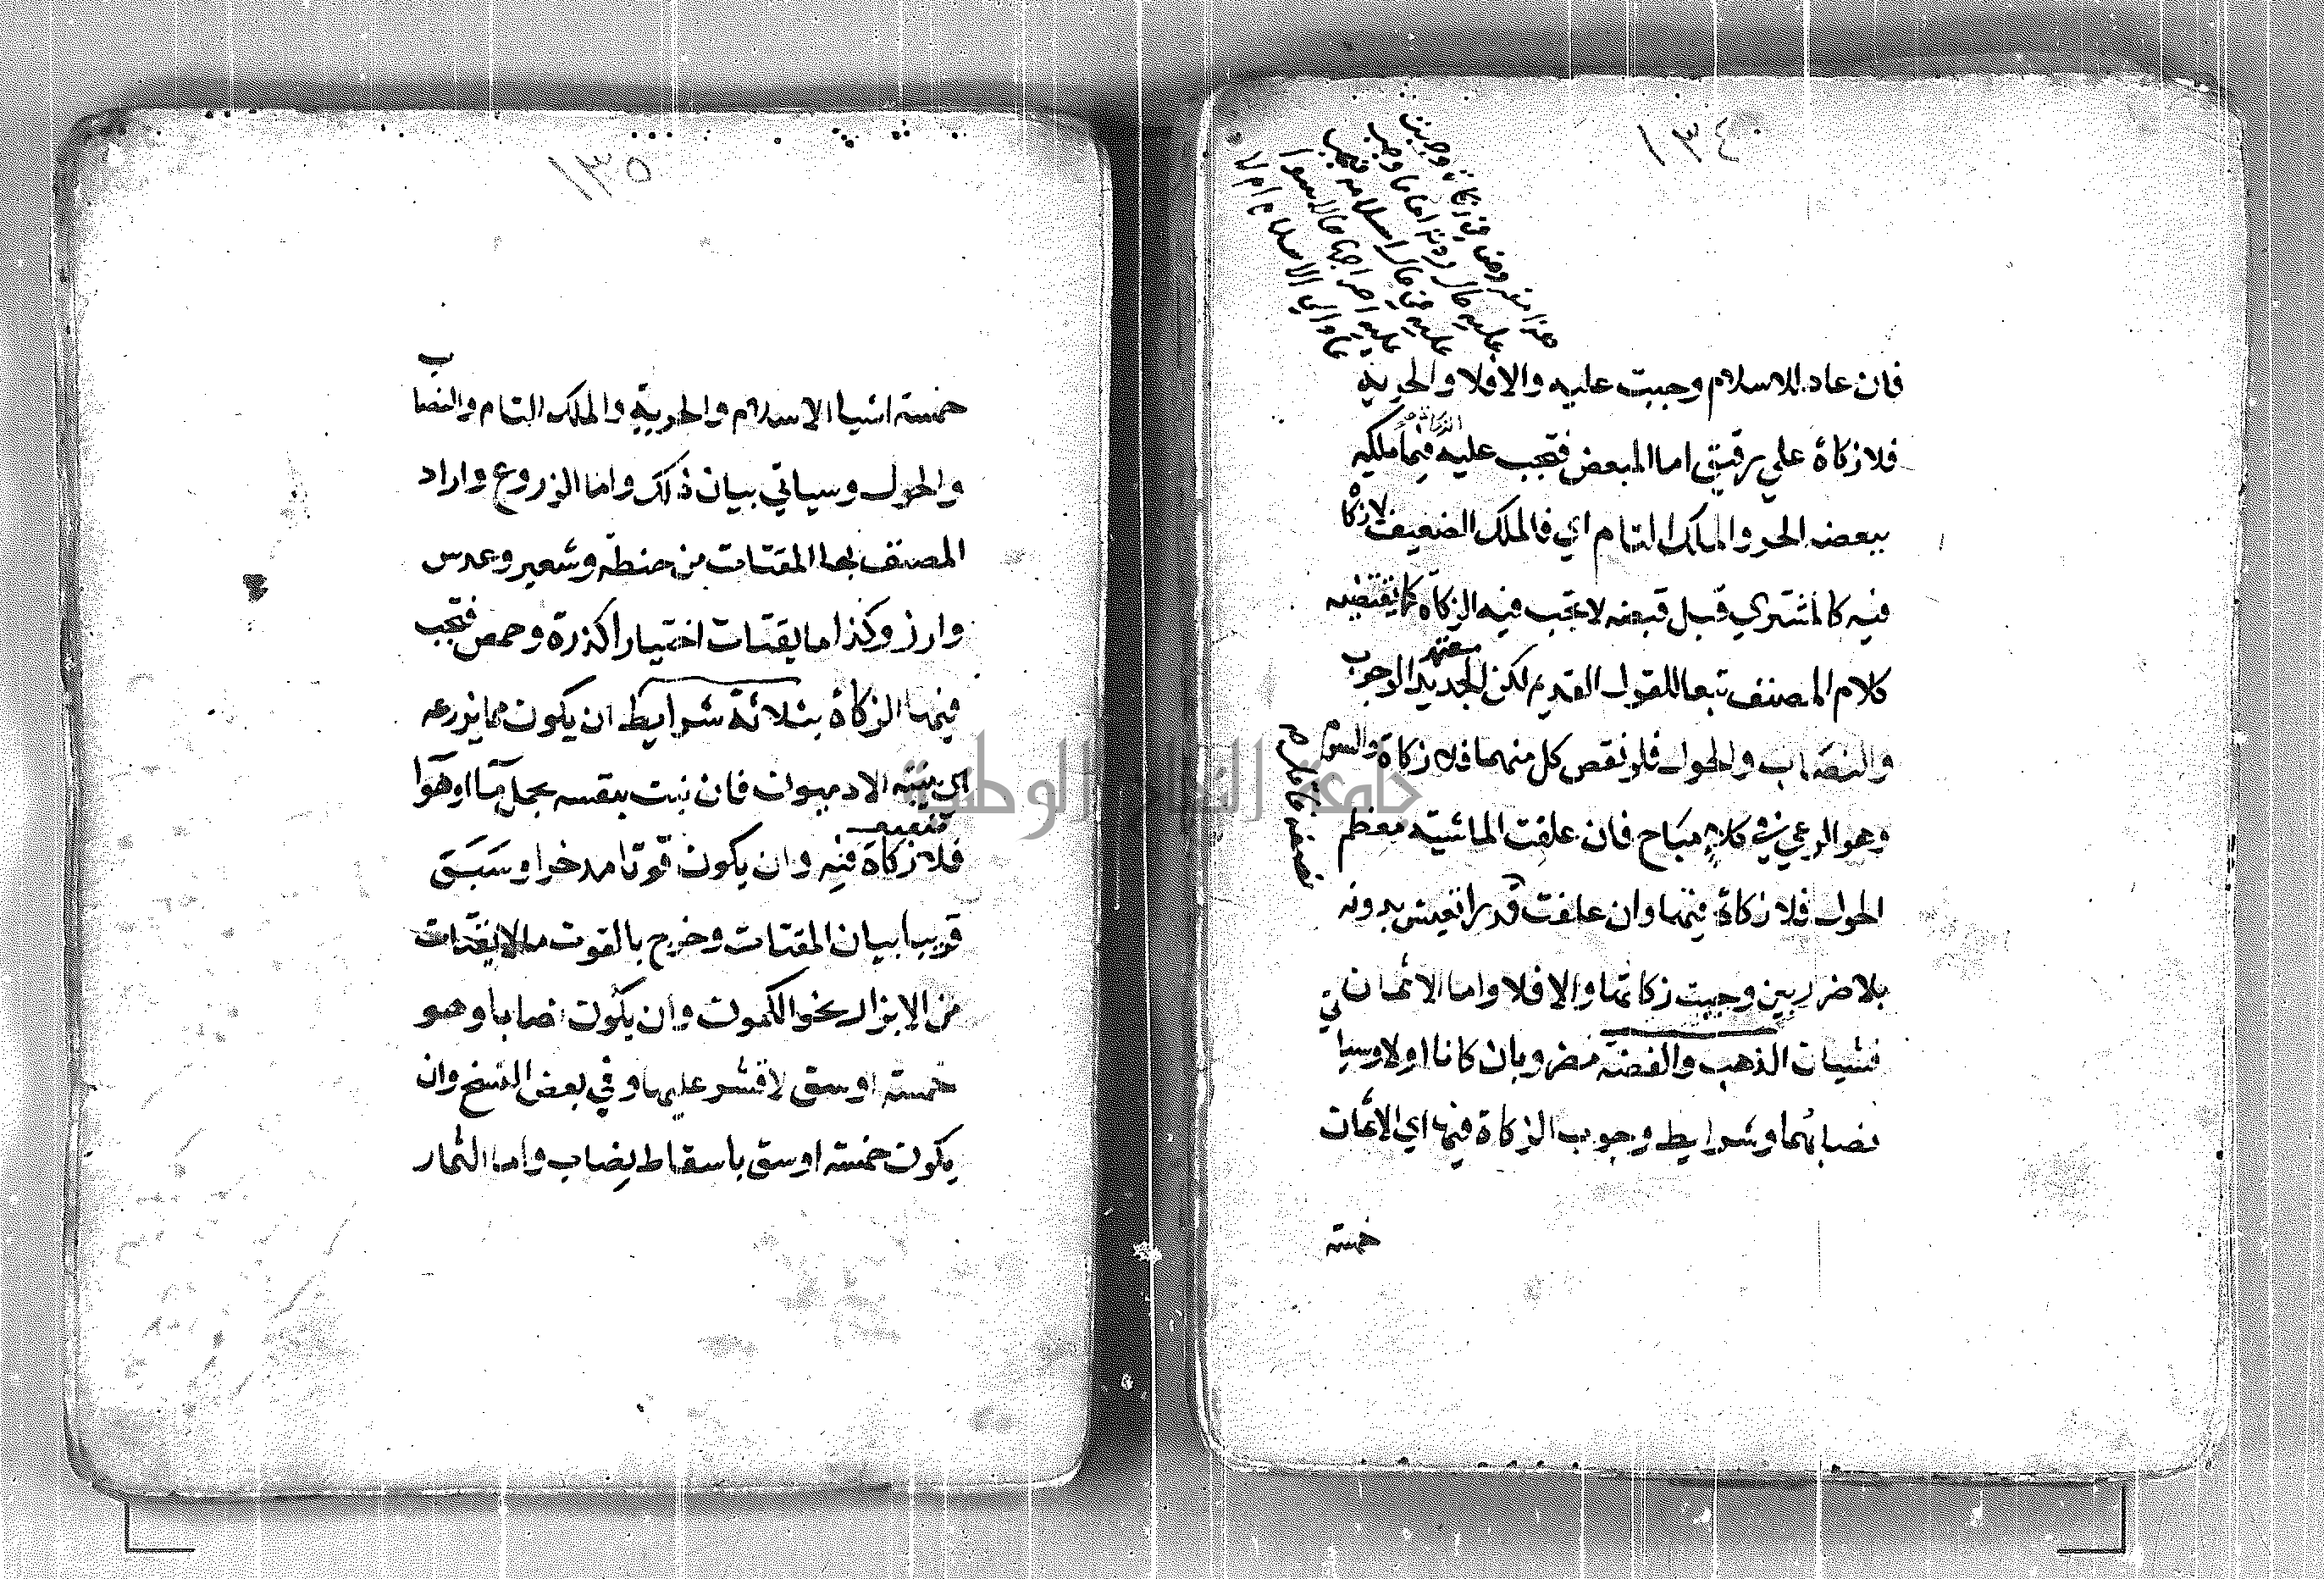 ١٣٤
هذا مفروض في زكاة وجبت
عليه حال ردته اما ما وجب
عليه في حال اسلامه فيجب
عليه اخراجها حالا سوا
عاد الي الاسلام ام لا
فان عاد للاسلام وجبت عليه والا فلا والحرية
فلا زكاة علي رقيق اما المبعض فتجب عليه الزكاة فيما ملكه
ببعضه الحر والملك التام اي فالملك الضعيف لا زكاة
فيه كالمشتري قبل قبضه لا تجب فيه الزكاة كما يقتضيه
معتمد
كلام المصنف تبعا للقول القديم لكن الجديد الوجوب
والنصاب والحول فلو نقص كل منهما فلا زكاة والسوم
وهو الرعي في كلاء مباح فان علفت الماشية معظم
الحول فلا زكاة فيها وان علفت قدرا تعيش بدونه
بلا ضرر بين وجبت زكاتها والا فلا واما الاثمان
فشيان الذهب والفضة مضروبان كانا اولا وسياتي
نصابهما وشرايط وجوب الزكاة فيها اي الاثمان
خمسة
١٣٥
خمسة اشيا الاسلام والحرية والملك التام والنصاب
والحول وسياتي بيان ذلك واما الزروع واراد
المصنف بها المقتات من حنطة وشعير وعدس
وارز وكذا ما يقتات اختيارا كذرة وحمص فتجب
فيها الزكاة بثلاثة شرايط ان يكون مما يزرعه
اي ينبته الادميون فان نبت بنفسه بحمل ما او هوا
ضعيف
فلا زكاة فيه وان يكون قوتا مدخرا وسبق
قريبا بيان المقتات وخرج بالقوت ما لا يقتات
من الابزار نحو الكمون وان يكون نصابا وهو
خمسة اوسق لا قشر عليها وفي بعض النسخ وان
يكون خمسة اوسق باسقاط نصاب واما الثمار
جامعة النجاح الوطنية